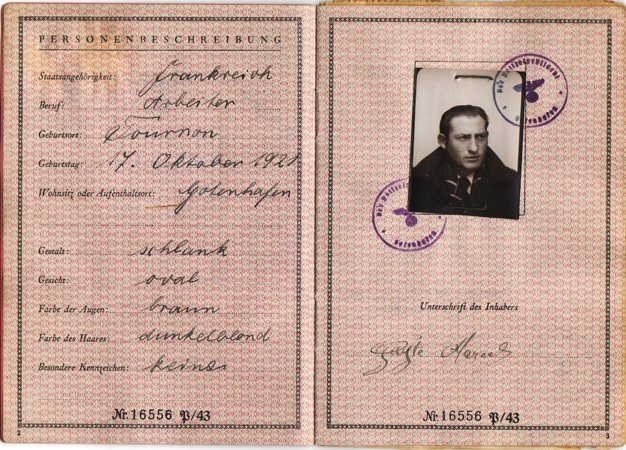 PERSONENBESCHREIBUNG
Staatsangehörigkeit: Frankreich
Beruf: Arbeiter
Geburtsort: Tournon
Geburtstag: 17. Oktober 1921
Wohnsitz oder Aufenthaltsort: Gotenhafen
Gestalt: schlank
Gesicht: oval
Farbe der Augen: braun
Farbe des Haares: dunkelblond
Besondere Kennzeichen: keine
Nr. 16556 P/43
2
Der Polizeipräsident
Gotenhafen
Der
Gotenhafen
Unterschrift des Inhabers
Marcel
Nr. 16556 P/43
3